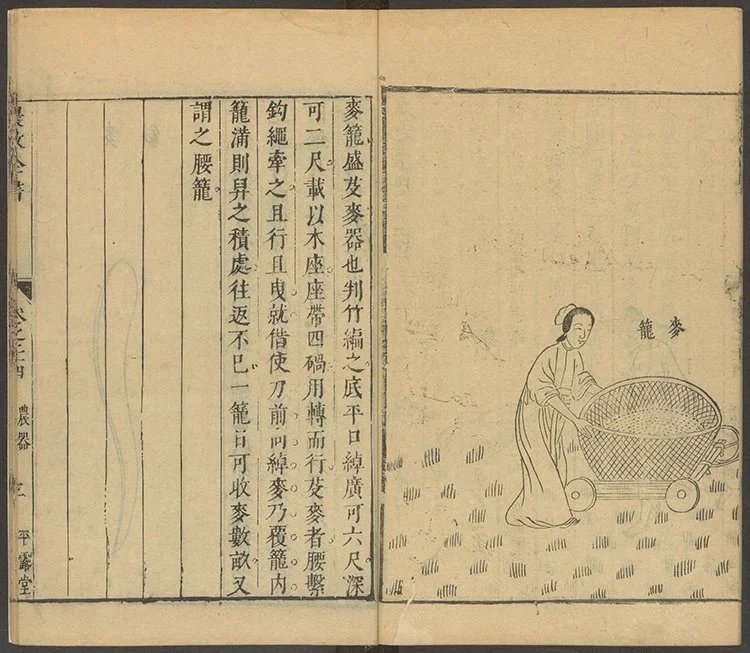 麥籠
麥籠盛芟麥器也判竹編之底平口綽廣可六尺深
可二尺載以木座座帶四碢用轉而行芟麥者腰繫
鈎繩牽之且行且曳就借使刀前向綽麥乃覆籠內
籠滿則舁之積處往返不已一籠日可收麥數畝又
謂之腰籠
農政全書
卷之二十四
農器
平露堂